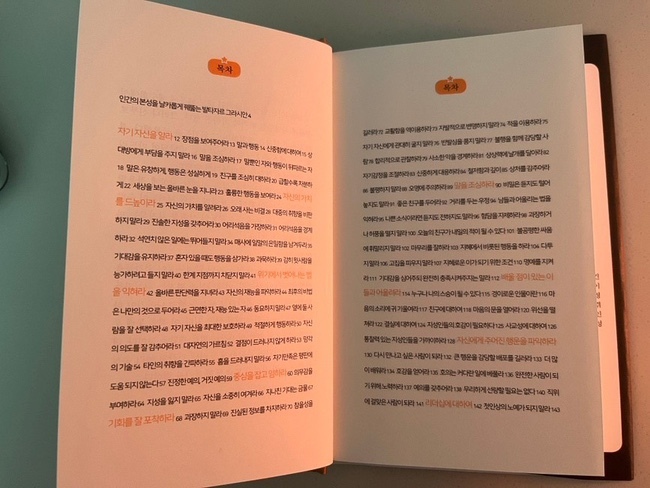 목차
인간의 본성을 날카롭게 꿰뚫는 발타자르 그라시안 4
자기 자신을 알라 12 장점을 보여주어라 13 말과 행동 14 신중함에 대하여 15 상
대방에게 부담을 주지 말라 16 말을 조심하라 17 말뿐인 자와 행동이 뒤따르는 자
18 말은 유창하게, 행동은 성실하게 19 친구를 조심히 대하라 20 급할수록 차분하
게 22 세상을 보는 올바른 눈을 지녀라 23 훌륭한 행동을 보여라 24 자신의 가치
를 드높이라 25 자신의 가치를 알려라 26 오래 사는 비결 28 대중의 취향을 비판
하지 말라 29 진솔한 지성을 갖추어라 30 어리석음을 가장하라 31 어려움을 견뎌
하라 32 석연치 않은 일에는 뛰어들지 말라 34 매사에 알맞은 은밀함을 남겨두라 35
기대감을 유지하라 37 혼자 있을 때도 행동을 삼가라 38 과묵하라 39 감히 윗사람을
능가하려고 들지 말라 40 한계 지점까지 치닫지 말라 41 위기에서 벗어나는 법
을 익혀라 42 올바른 판단력을 지녀라 43 자신의 재능을 파악하라 44 최후의 비법
은 나만의 것으로 두어라 45 근면한 자, 재능 있는 자 46 동요하지 말라 47 옆에 둘 사
람을 잘 선택하라 48 자기 자신을 최대한 보호하라 49 적절하게 행동하라 50 자신
의 의도를 잘 감추어라 51 대자연의 가르침 52 결점이 드러나지 않게 하라 53 망각
의 기술 54 타인의 취향을 간파하라 55 흠을 드러내지 말라 56 자기만족은 명민에
도움 되지 않는다 57 진정한 예의, 거짓 예의 59 중심을 잡고 임하라 60 의무감을
부여하라 64 지성을 잃지 말라 65 자신을 소중히 여겨라 66 지나친 기대는 금물 67
기회를 잘 포착하라 68 과장하지 말라 69 진실된 정보를 차지하라 70 참을성을
목차
길러라 72 교활함을 역이용하라 73 자발적으로 변명하지 말라 74 적을 이용하라 75
자기 자신에게 관대히 굴지 말라 76 반발심을 품지 말라 77 불행을 함께 감당할 사
람 78 합리적으로 관찰하라 79 사소한 악을 경계하라 81 상상력에 날개를 달아라 82
자기감정을 조절하라 83 신중하게 대응하라 84 절제함과 깊이 85 상처를 감추어라
86 불평하지 말라 88 오명에 주의하라 89 말을 조심하라 90 비밀은 듣지도 털어
놓지도 말라 91 좋은 친구를 두어라 92 거리를 두는 우정 94 남들과 어울리는 법을
익혀라 96 나쁜 소식이라면 듣지도 전하지도 말라 98 험담을 자제하라 99 과장하거
나 허풍을 떨지 말라 100 오늘의 친구가 내일의 적이 될 수 있다 101 불공평한 사움
에 휘말리지 말라 102 마무리를 잘하라 103 지혜에서 비롯된 행동을 하라 104 다투
지 말라 106 고집을 피우지 말라 107 지혜로운 이가 되기 위한 조건 110 명예를 지켜
라 111 기대감을 심어주되 완전히 충족시켜주지는 말라 112 배울 점이 있는 이
들과 어울려라 114 누구나 나의 스승이 될 수 있다 115 경이로운 인물이란 116 마
음의 소리에 귀 기울여라 117 친구에 대하여 118 마음의 문을 열어라 120 위선을 떨
쳐라 122 결실에 대하여 124 지성인들의 호감이 필요하다 125 사교성에 대하여 126
통찰력 있는 지성인들을 가까이하라 128 자신에게 주어진 행운을 파악하라
130 다시 만나고 싶은 사람이 되라 132 큰 행운을 감당할 배포를 길러라 133 더 많
이 배워라 134 호감을 얻어라 135 호의는 커다란 일에 베풀라 136 완전한 사람이 되
기 위해 노력하라 137 예의를 갖추어라 138 무리하게 선망할 필요는 없다 140 직위
에 걸맞은 사람이 되라 141 리더십에 대하여 142 첫인상의 노예가 되지 말라 143